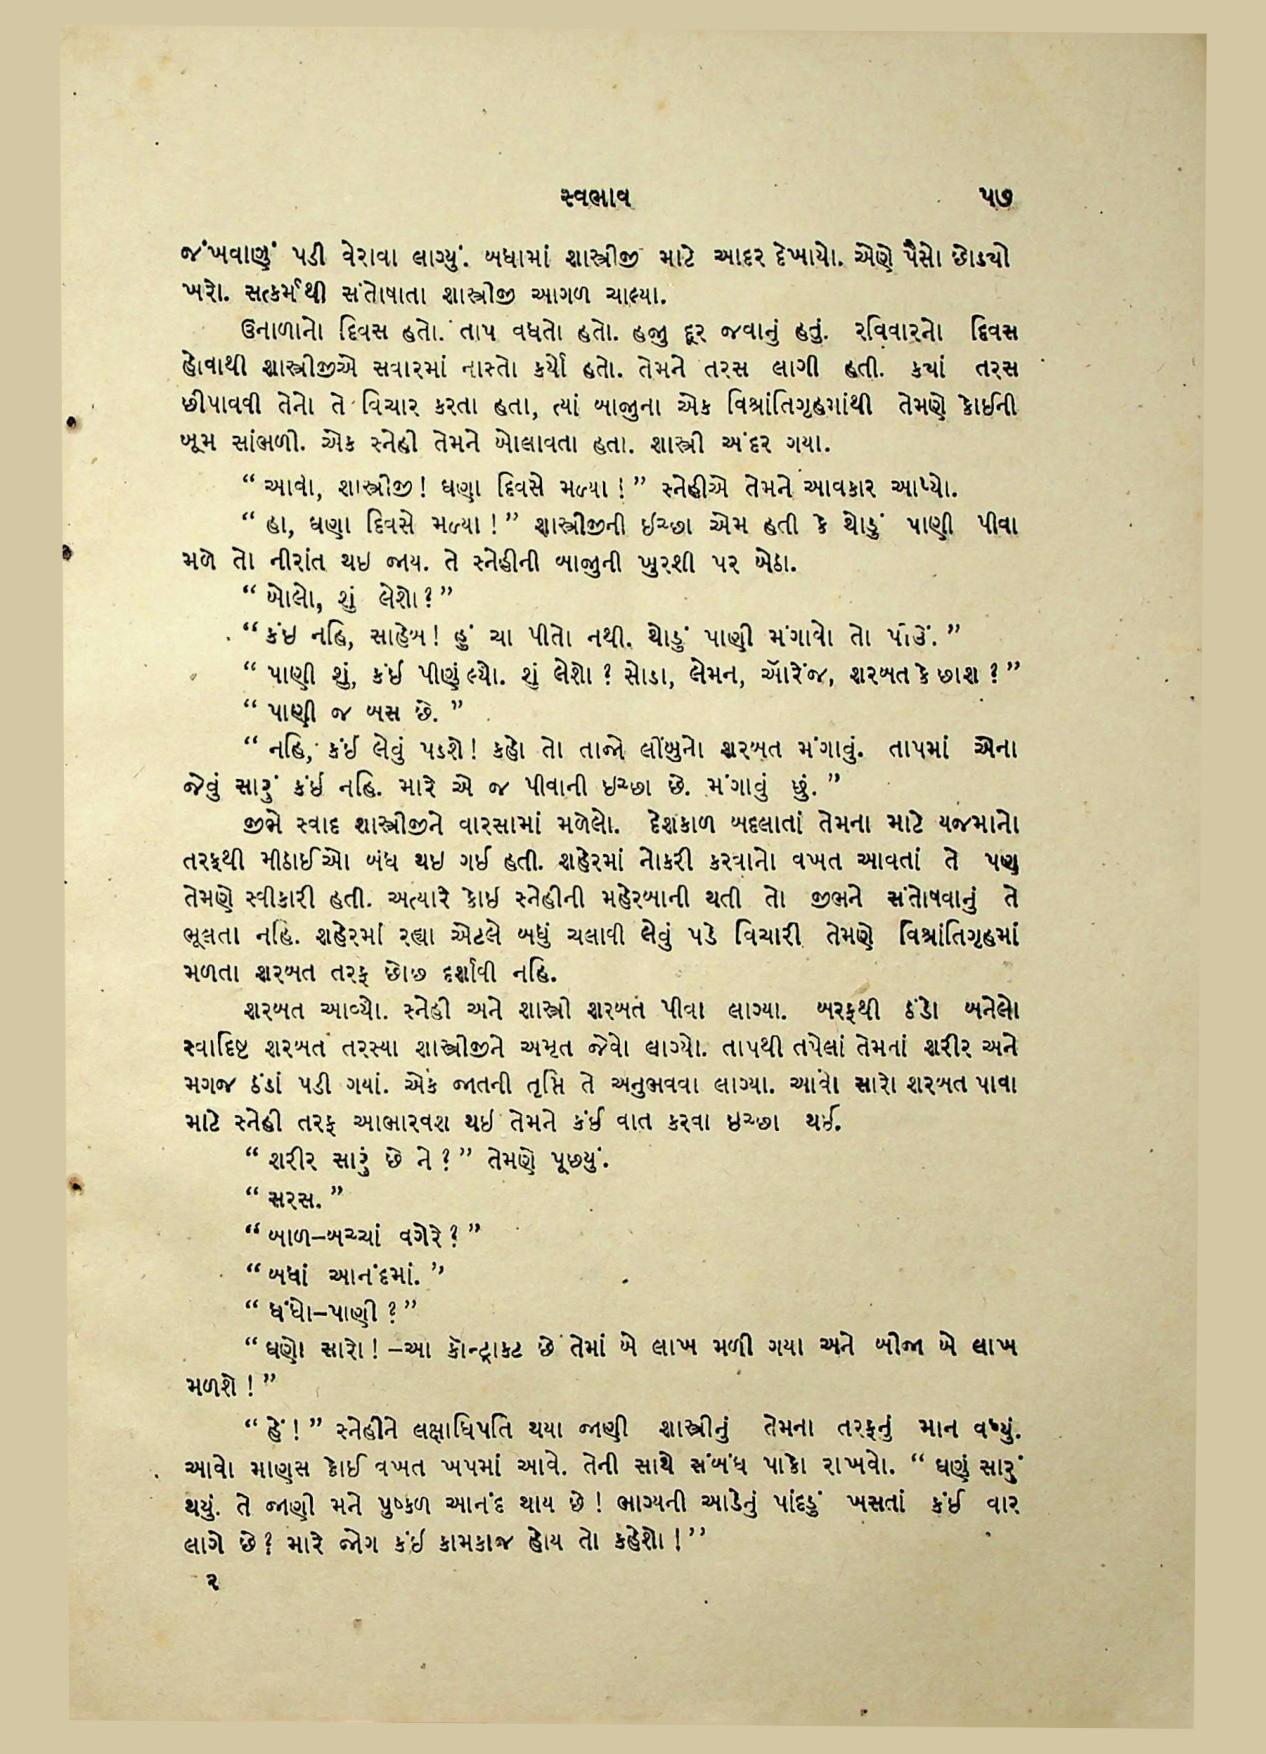 સ્વભાવ ૫૭
જંખવાણું પડી વેરાવા લાગ્યું. બધામાં શાસ્ત્રીજી માટે આદર દેખાયો. એણે પૈસો છોડ્યો
ખરો. સત્કર્મથી સંતોષાતા શાસ્ત્રીજી આગળ ચાલ્યા.
ઉનાળાનો દિવસ હતો. તાપ વધતો હતો. હજી દૂર જવાનું હતું. રવિવારનો દિવસ
હોવાથી શાસ્ત્રીજીએ સવારમાં નાસ્તો કર્યો હતો. તેમને તરસ લાગી હતી. ક્યાં તરસ
છીપાવવી તેનો તે વિચાર કરતા હતા, ત્યાં બાજુના એક વિશ્રાંતિગૃહમાંથી તેમણે કોઈની
બૂમ સાંભળી. એક સ્નેહી તેમને બોલાવતા હતા. શાસ્ત્રી અંદર ગયા.
“ આવો, શાસ્ત્રીજી! ઘણા દિવસે મળ્યા ! ” સ્નેહીએ તેમને આવકાર આપ્યો.
“ હા, ઘણા દિવસે મળ્યા ! ” શાસ્ત્રીજીની ઇચ્છા એમ હતી કે થોડું પાણી પીવા
મળે તો નીરાંત થઇ જાય. તે સ્નેહીની બાજુની ખુરશી પર બેઠા.
“ બોલો, શું લેશો? ”
“ કંઇ નહિ, સાહેબ! હું ચા પીતો નથી. થોડું પાણી મંગાવો તો પીઉં. ”
“ પાણી શું, કંઈ પીણું લ્યો. શું લેશો ? સોડા, લેમન, ઑરેંજ, શરબત કે છાશ ? ”
“ પાણી જ બસ છે. ”
“ નહિ, કંઈ લેવું પડશે! કહો તો તાજો લીંબુનો શરબત મંગાવું. તાપમાં એના
જેવું સારું કંઇ નહિ. મારે એ જ પીવાની ઇચ્છા છે. મંગાવું છું. ”
જીભે સ્વાદ શાસ્ત્રીજીને વારસામાં મળેલો. દેશકાળ બદલાતાં તેમના માટે યજમાનો
તરફથી મીઠાઈઓ બંધ થઇ ગઈ હતી. શહેરમાં નોકરી કરવાનો વખત આવતાં તે પણ
તેમણે સ્વીકારી હતી. અત્યારે કોઇ સ્નેહીની મહેરબાની થતી તો જીભને સંતોષવાનું તે
ભૂલતા નહિ. શહેરમાં રહ્યા એટલે બધું ચલાવી લેવું પડે વિચારી તેમણે વિશ્રાંતિગૃહમાં
મળતા શરબત તરફ છોછ દર્શાવી નહિ.
શરબત આવ્યો. સ્નેહી અને શાસ્ત્રી શરબત પીવા લાગ્યા. બરફથી ઠંડો બનેલો
સ્વાદિષ્ટ શરબત તરસ્યા શાસ્ત્રીજીને અમૃત જેવો લાગ્યો. તાપથી તપેલાં તેમનાં શરીર અને
મગજ ઠંડાં પડી ગયાં. એક જાતની તૃપ્તિ તે અનુભવવા લાગ્યા. આવો સારો શરબત પાવા
માટે સ્નેહી તરફ આભારવશ થઇ તેમને કંઈ વાત કરવા ઇચ્છા થઈ.
“ શરીર સારું છે ને ? ” તેમણે પૂછયું.
“ સરસ. ”
“ બાળ–બચ્ચાં વગેરે ? ”
“ બધાં આનંદમાં. ”
“ ધંધો–પાણી ? ”
“ ઘણો સારો ! –આ કૉન્ટ્રાક્ટ છે તેમાં બે લાખ મળી ગયા અને બીજા બે લાખ
મળશે ! ”
“ હેં ! ” સ્નેહીને લક્ષાધિપતિ થયા જાણી શાસ્ત્રીનું તેમના તરફનું માન વધ્યું.
આવો માણસ કોઈ વખત ખપમાં આવે. તેની સાથે સંબંધ પાકો રાખવો. “ ઘણું સારું
થયું. તે જાણી મને પુષ્કળ આનંદ થાય છે ! ભાગ્યની આડેનું પાંદડું ખસતાં કંઈ વાર
લાગે છે ? મારે જોગ કંઈ કામકાજ હોય તો કહેશો ! ”
૨